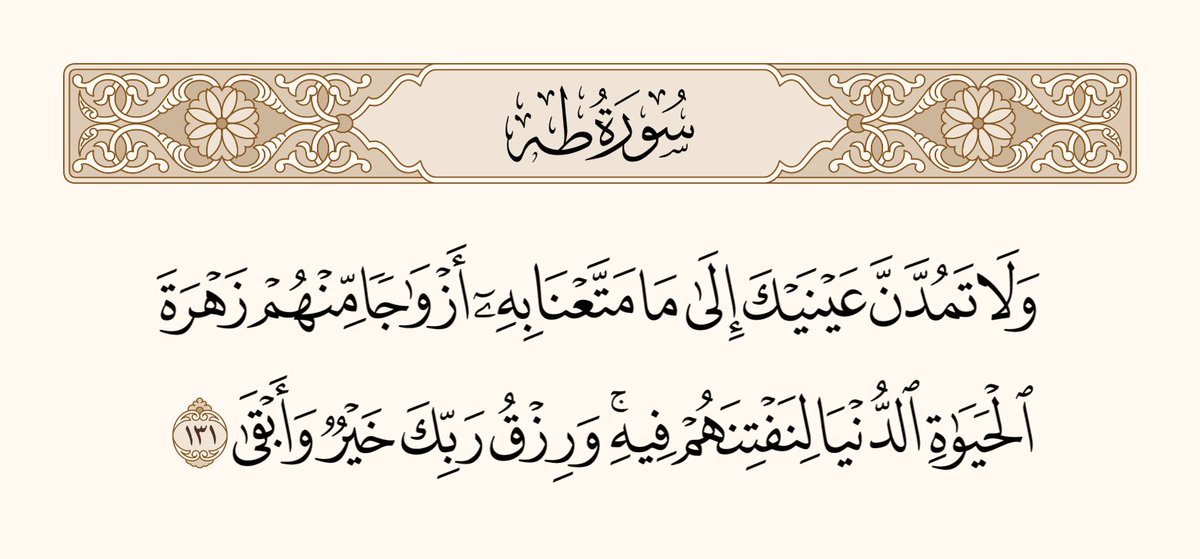 سُورَةُ طه
وَلَا تَمُدَّنَّ عَيْنَيْكَ إِلَىٰ مَا مَتَّعْنَا بِهِۦٓ أَزْوَٰجًا مِّنْهُمْ زَهْرَةَ
ٱلْحَيَوٰةِ ٱلدُّنْيَا لِنَفْتِنَهُمْ فِيهِۚ وَرِزْقُ رَبِّكَ خَيْرٌ وَأَبْقَىٰ ١٣١